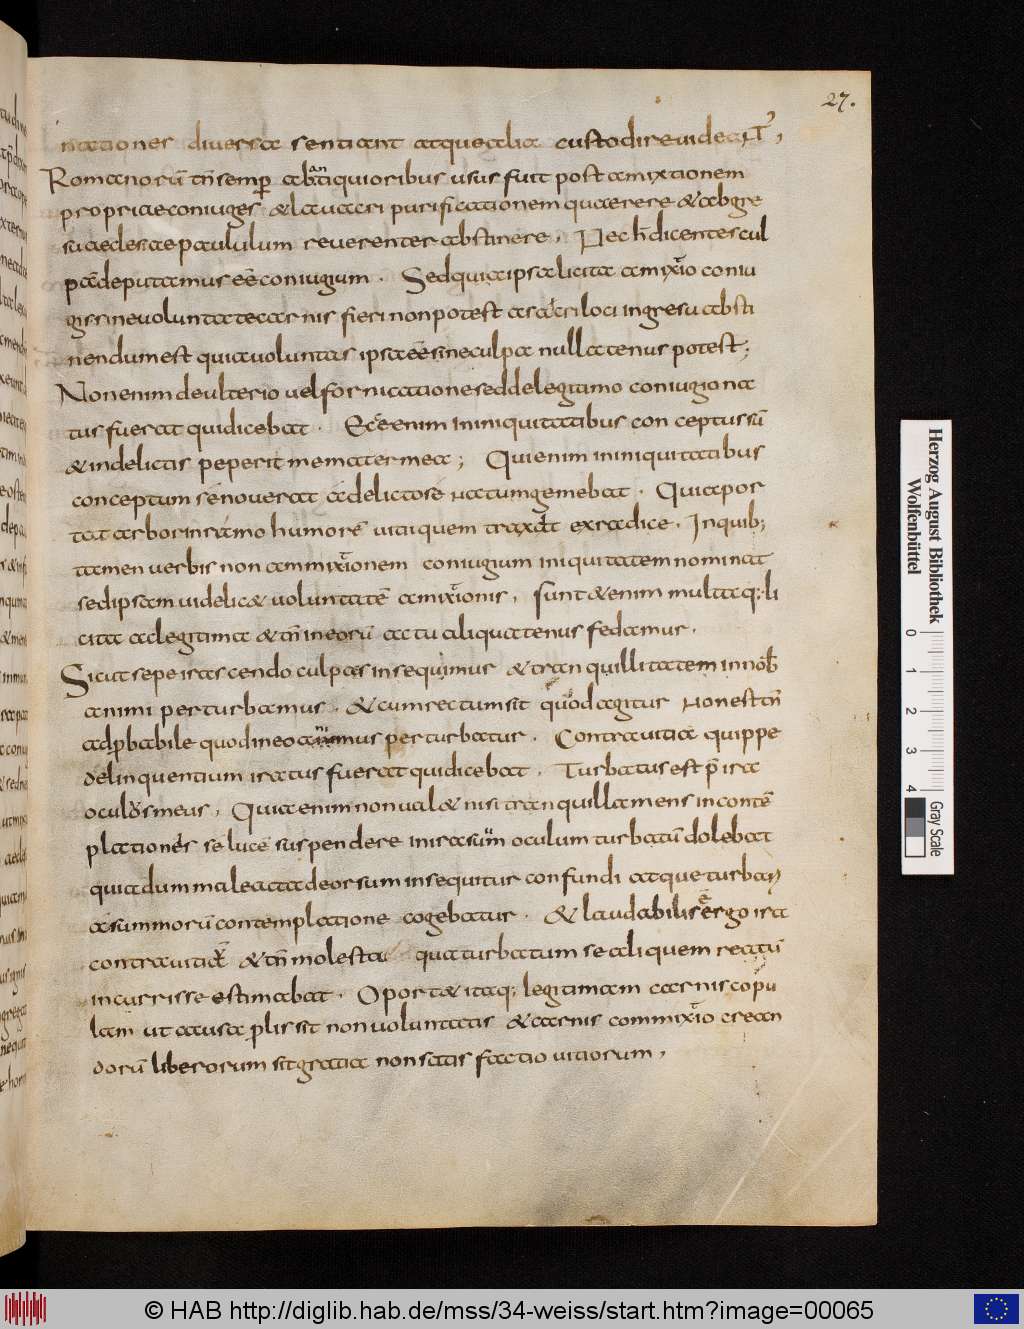 27.
nationes diversae sentiant atque alia custodire videant,
Romanorū tñ semper ab antiquioribus usus fuit post amixtionem
propriae coniuges & lavacri purificationem quaerere & ab gre
su aedesiae paululum reverenter abstinere. Nec h̄ dicentes cul
pā deputamus eē coniugium. Sed quia ipsa licita amixtio coniu
gis sine voluntate carnis fieri non potest a sacri loci ingresu absti
nendum est quia voluntas ipsa eē sine culpa nullatenus potest;
Non enim de ulterio vel fornicatione sed de legitimo coniugio na
tus fuerat qui dicebat. Ecce enim in iniquitatibus conceptus sū
& in delictis peperit me mater mea; Qui enim in iniquitatibus
conceptum se noverat a delicto se natum gemebat. Quia por
tat arbor in ramo humorē vitii quem traxit ex radice. Inquib;
tamen verbis non ammixtionem coniugium iniquitatem nominat
sed ipsam videlic& voluntatē amixtionis. sunt & enim multa q; li
cita ac legitima & tñ in eorū actu aliquatenus fedamur.
Sicut sepe irascendo culpas insequimur & tranquillitatem in nob̄
animi perturbamus. & cum rectum sit quod agitur non est tñ
adpbabile quod in eo animus perturbatur. Contra vitia quippe
delinquentium iratus fuerat qui dicebat. Turbatus est p̄ ira
oculos meus. Quia enim non val& nisi tranquilla mens in contē
plationes se lucē suspendere in ira suum oculum turbatū dolebat
quia dum male acta deorsum insequitur confundi atque turbari
a summorū contemplatione cogebatur. & laudabilis ē ergo ira
contra vitia & tñ molesta qua turbatum se aliquem reatū
incurrisse estimabat. Oport& itaq; legitimam carnis copu
lam ut causa plis sit non voluntatis & carnis commixtio crean
dorū liberorum sit gratia non satis factio vitiorum.
Herzog August Bibliothek
Wolfenbüttel
0 1 2 3 4
Gray Scale
© HAB http://diglib.hab.de/mss/34-weiss/start.htm?image=00065